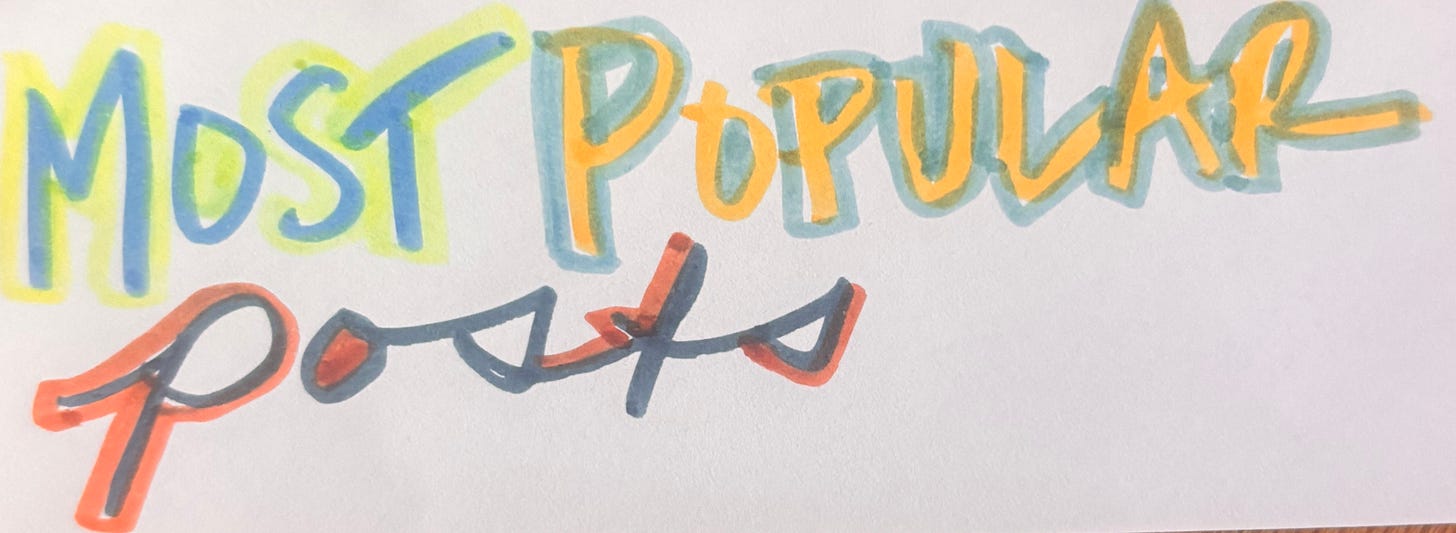 MOST POPULAR
posts